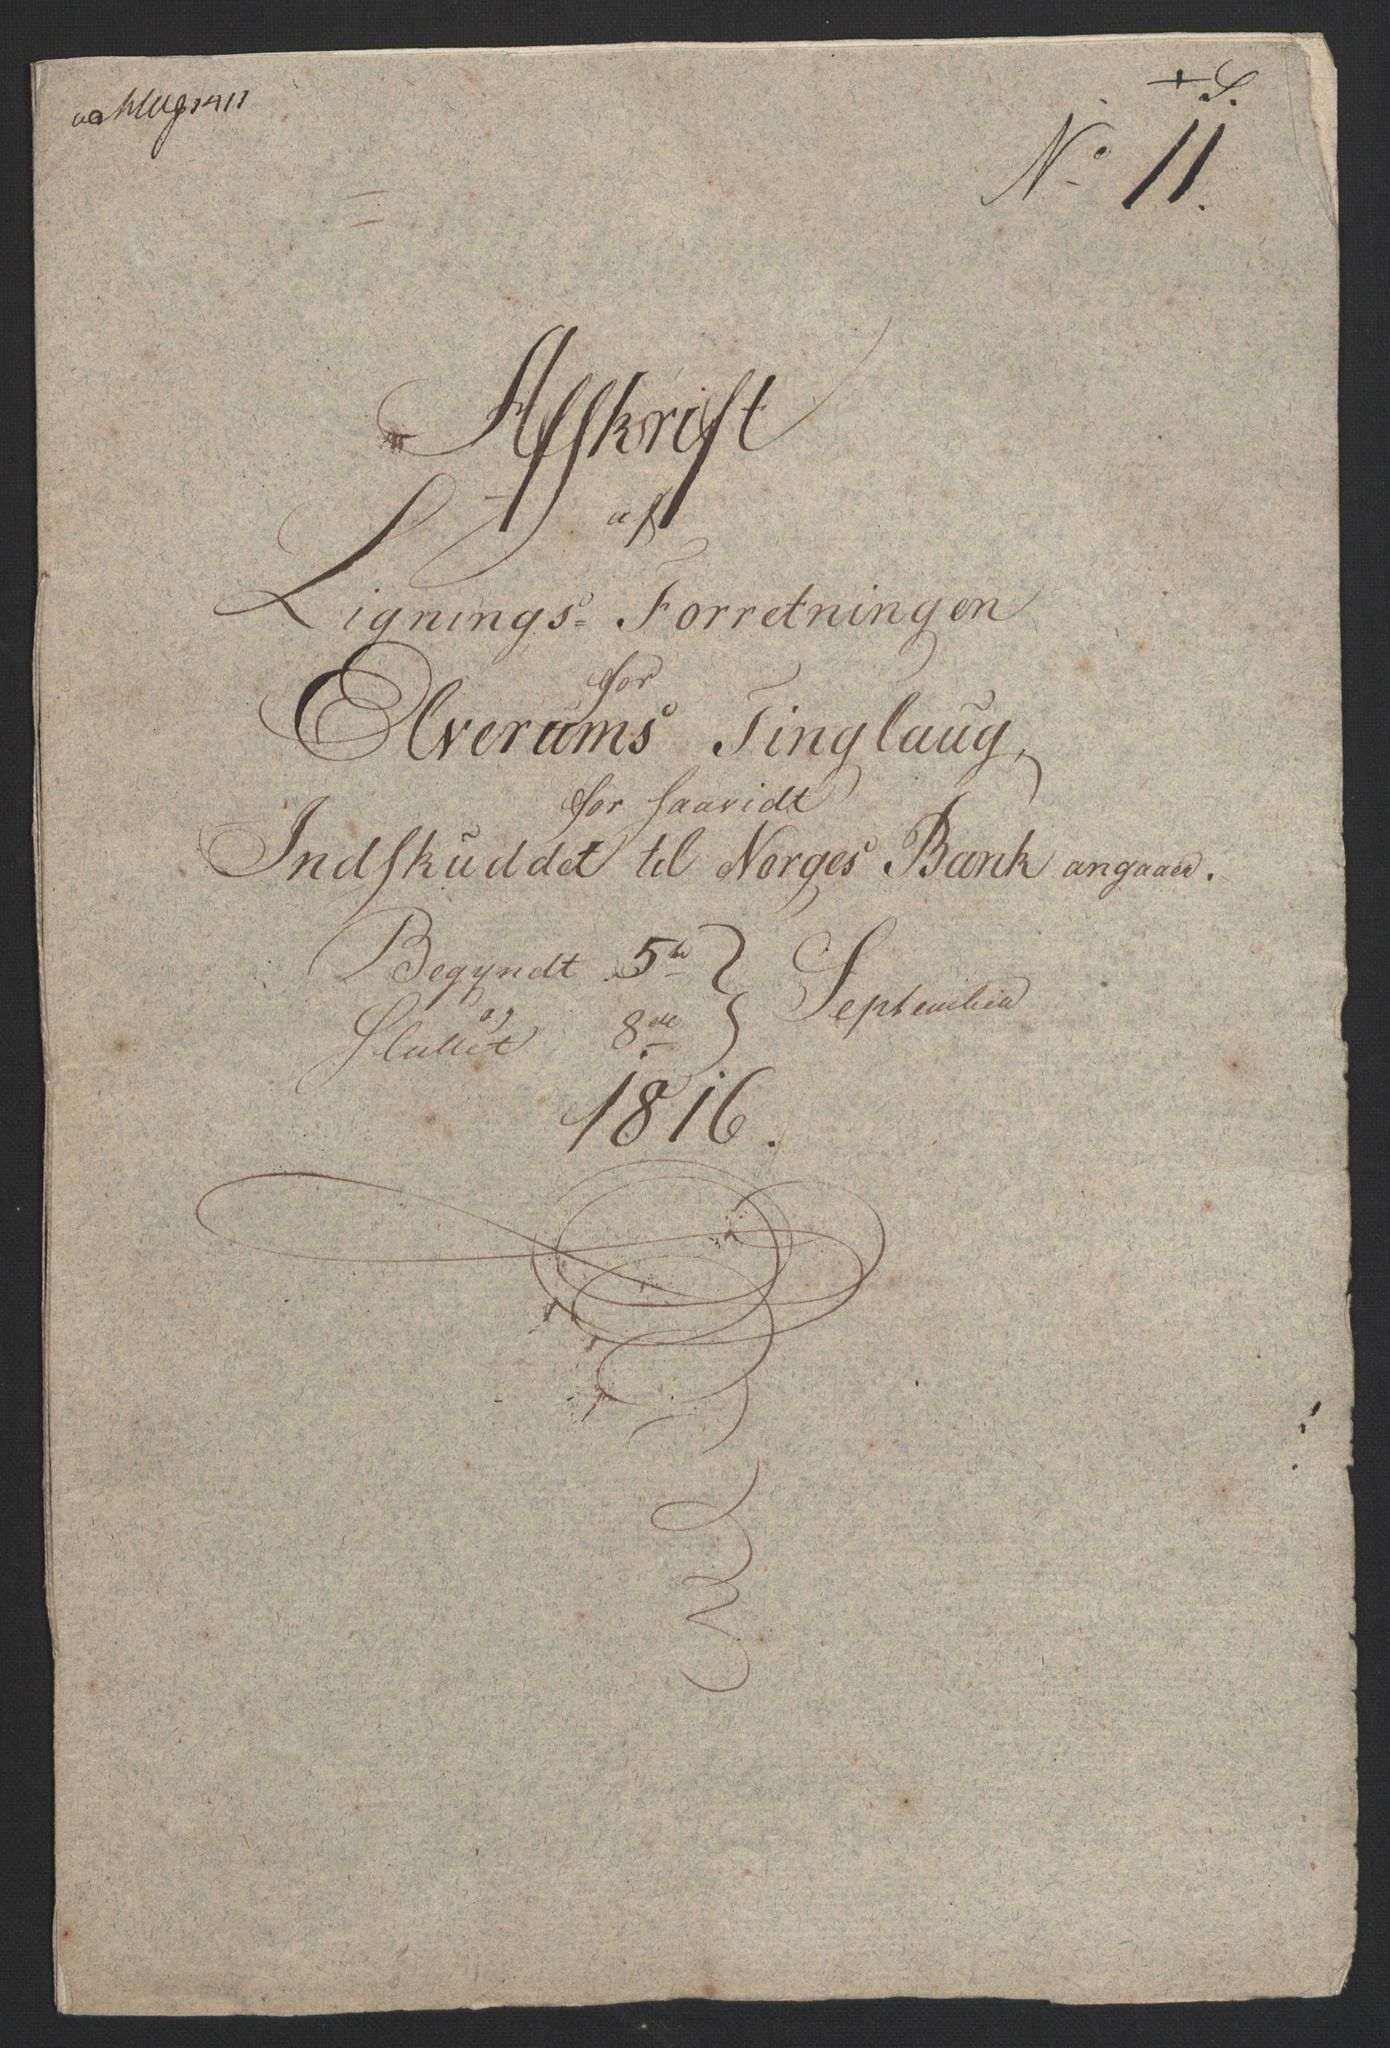 + S.
No 11.
Afskrift
af
Lignings=Forretningen
for
Elverums Tinglaug,
for saavidt
Indskuddet til Norges Bank angaaer.
Begyndt 5te
og
Sluttet 8de
September
1816.